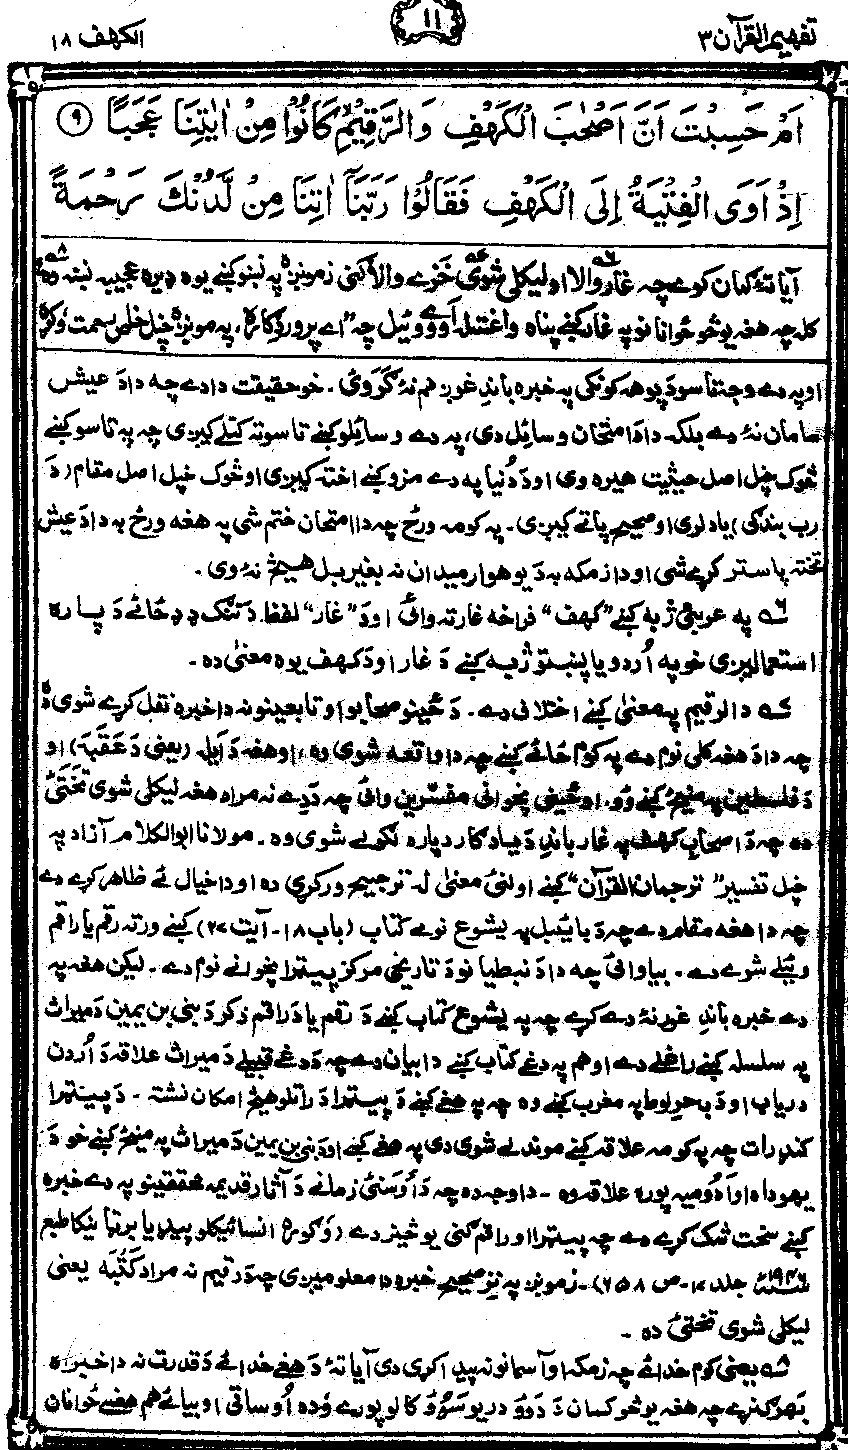 تفهیم القرآن ۳
۱۱
الکهف ۱۸
اَمْ حَسِبْتَ اَنَّ اَصْحٰبَ الْكَهْفِ وَالرَّقِيْمِ كَانُوْا مِنْ اٰيٰتِنَا عَجَبًا ۹
اِذْ اَوَى الْفِتْيَةُ اِلَى الْكَهْفِ فَقَالُوْا رَبَّنَآ اٰتِنَا مِنْ لَّدُنْكَ رَحْمَةً
آیا تۀ ګمان کوے چہ غار والا او لیکلی شوی تختے والا کنی زمونږه پہ نښو کښے یوه ډیره عجیبہ نښہ وه
کلہ چہ هغہ یو څو ځوانانو پہ غار کښے پناه واغستلہ او وے وئیل چہ "اے پروردګاره، پہ مونږه خپل خاص رحمت وکړه
او پہ دے وجہ تاسو د یو هم کونکی پہ خبره باندِ غور هم نۀ کَوئ. خو حقیقت دا دے چہ دا دَ عیش
سامان نۀ دے بلکہ دا دَ امتحان وسائل دی، پہ دے وسائلو کښے تاسو تہ کتلے کیږی چہ پہ تاسو کښے
څوک خپل اصل حیثیت هیره وی او دَ دُنیا پہ دے مزو کښے اختہ کیږی او څوک خپل اصل مقام (دَ
رب بندگی) یاد لری او صحیح پاتے کیږی. پہ کومہ ورځ چہ دا امتحان ختم شی پہ هغہ ورځ بہ دا دَ عیش
تختہ پاستر کړے شی او دا زمکہ بہ دَ یو هوار میدان نہ بغیر بل هیڅ نۀ وی.
۶ پہ عربئ ژبہ کښے "کهف" فراخہ غار تہ وائی او دَ "غار" لفظ دَ تنگ دِ ځائے دَ پاره
استعمالیږی خو پہ اُردو یا پښتو ژبہ کښے دَ غار او دَ کهف یوه معنیٰ ده.
۷ دَ الرقیم پہ معنیٰ کښے اختلاف دے. دَ ځینو صحابو او تابعینو نہ دا خبره نقل کړے شوی ده
چہ دا دَ هغہ کلی نوم دے پہ کوم ځائے کښے چہ دا واقعہ شوی وه، او هغہ دَ ایلہ (یعنی دَ عَقَبَة) او
دَ فلسطین پہ مینځ کښے وُو. او ځینی پخوانی مفسّرین وائی چہ دَدے نہ مراد هغہ لیکلی شوی تختئ
ده چہ دَ اصحابِ کهف پہ غار باندِ دَ یادګار دپاره لګولے شوی وه. مولانا ابو الکلام آزاد پہ
خپل تفسیر "ترجمان القرآن" کښے اولنئ معنیٰ لہ ترجیح ورکړی ده او دا خیال ئے ظاهر کړے دے
چہ دا هغہ مقام دے چہ دَ بائیبل پہ یشوع نومے کتاب (باب ۱۸-آیت ۲۷) کښے ورتہ رقم یا راقم
وئیلے شوے دے. بیا وائی چہ دا دَ نبطیانو دَ تاریخی مرکز پیټرا پخوانے نوم دے. لیکن هغہ پہ
دے خبره باندِ غور نۀ دے کړے چہ پہ یشوع کتاب کښے دَ رقم یا دَ راقم ذکر دَ بنی بن یمین دَ میراث
پہ سلسلہ کښے راغلے دے او هم پہ دغے کتاب کښے دا بیان دے چہ دَ دغے قبیلے دَ میراث علاقہ دَ اُردن
دریاب او دَ بحرِ لوط پہ مغرب کښے وه چہ پہ هغے کښے دَ پیټرا دَ راتلو هیڅ امکان نشتہ. دَ پیټرا
کنډرات چہ پہ کومہ علاقہ کښے موندلے شوی دی پہ هغے کښے او دَ بنی بن یمین دَ میراث پہ مینځ کښے خو دَ
یهوداه او ادُومیہ پوره علاقہ وه. دا وجہ ده چہ دَ اوسنئ زمانے دَ آثارِ قدیمہ محققینو پہ دے خبره
کښے سخت شک کړے دے چہ پیټرا او راقم کنی یو څیز دے (وګوره انسائیکلوپیډیا برټانیکا طبع
۱۹۴۶ء جلد ۱۷-ص ۶۵۸). زمونږ پہ نزد صحیح خبره دا معلومیږی چہ دَ رقیم نہ مراد کَتُبَہ یعنی
لیکلی شوی تختئ ده.
۸ یعنی کوم خدائے چہ زمکہ او آسمانونہ پیدا کړی دی آیا تۀ دَ هغے خدائے دَ قدرت نہ دا خبره
بهر ګنړے چہ هغہ یو څو کسان دَ دوؤ دریو سَوؤ کالو پورے اُوده اُوساتی او بیا ئے هم هغسے ځوانان